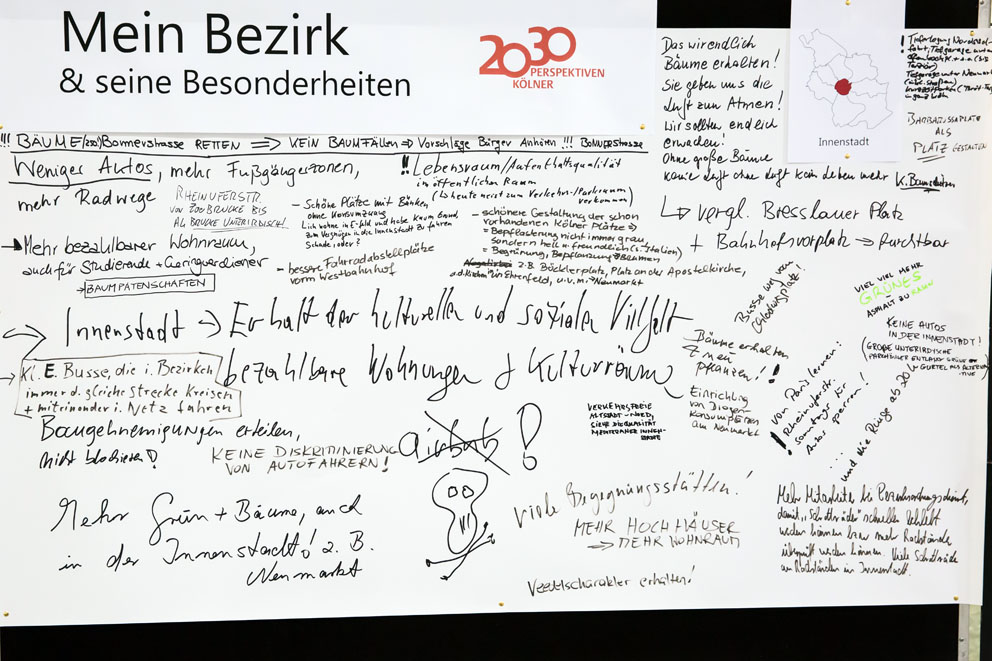 Mein Bezirk
& seine Besonderheiten
2030
PERSPEKTIVEN
KÖLNER
Innenstadt
Das wir endlich
Bäume erhalten!
Sie geben uns die
Luft zum Atmen!
Wir sollten endlich
erwachen!
Ohne große Bäume
keine Luft ohne Luft kein Leben mehr
ALS
PLATZ GESTALTEN
!!! BÄUME /Bonnerstrasse RETTEN ⇒ KEIN BAUMFÄLLEN ⇒ Vorschläge Bürger Anhören !!! BONNERSTRASSE
Weniger Autos, mehr Fußgängerzonen,
mehr Radwege
RHEINUFERSTR.
VON ZOOBRÜCKE BIS
ALBRÜCKE UNTERIRDISCH!
→ Mehr bezahlbarer Wohnraum,
auch für Studierende + Geringverdiener
→ BAUMPATENSCHAFTEN
!! Lebensraum/Aufenthaltsqualität
im öffentlichen Raum
(↳ heute meist zum Verkehrs-/Parkraum
verkommen)
- Schöne Plätze mit Bänken
ohne Konsumzwang
Ich wohne in E-feld und habe kaum Grund,
zum Vergnügen in die Innenstadt zu fahren
Schade, oder?
- bessere Fahrradabstellplätze
vorm Westbahnhof
- schönere Gestaltung der schon
vorhandenen Kölner Plätze ⇒
= Bepflasterung nicht immer grau,
sondern hell u. freundlich (s. Italien)
= Begrünung, Bepflanzung → Bäumen
z.B. Böcklerplatz, Platz an der Apostelkirche,
in Ehrenfeld, u.v.m. → Neumarkt
↳ vergl. Breslauer Platz
+ Bahnhofsvorplatz → furchtbar
Busse weg vom
Chlodwigplatz!
VIEL VIEL MEHR
GRÜNES
ASPHALT ZU
KEINE AUTOS
IN DER INNENSTADT!
(GROßE UNTERIRDISCHE
GÜRTEL ALS ALTERNA-
TIVE)
Innenstadt → Erhalt der kulturellen und sozialen Vielfalt
bezahlbare Wohnungen + Kulturräume
→ Kl. E. Busse, die i. Bezirken
immer d. gleiche Strecke kreisen
+ miteinander i. Netz fahren
Bäume erhalten
+ neu
pflanzen!!
Einrichtung
von Drogen-
konsumräumen
am Neumarkt
VERKEHRSFREIE
ALTSTADT
SIEHE DIE QUALITÄT
MEDITERRANER INNEN-
STÄDTE
! von Paris lernen:
Rheinuferstr.
sonntags für
Autos sperren!
.... und die Ringe ab 20
Baugenehmigungen erteilen,
nicht blockieren!
KEINE DISKRIMINIERUNG
VON AUTOFAHRERN!
airbnb !
Mehr Grün + Bäume, auch
in der Innenstadt! z.B.
Neumarkt
Viele Begegnungsstätten!
MEHR HOCHHÄUSER
→ MEHR WOHNRAUM
Veedelscharakter erhalten!
Mehr Mitarbeiter bei
damit „Schrotträder" schneller beklebt
werden können bzw mehr Radstände
überprüft werden können. Viele Schrotträder
an Radständen in Innenstadt.